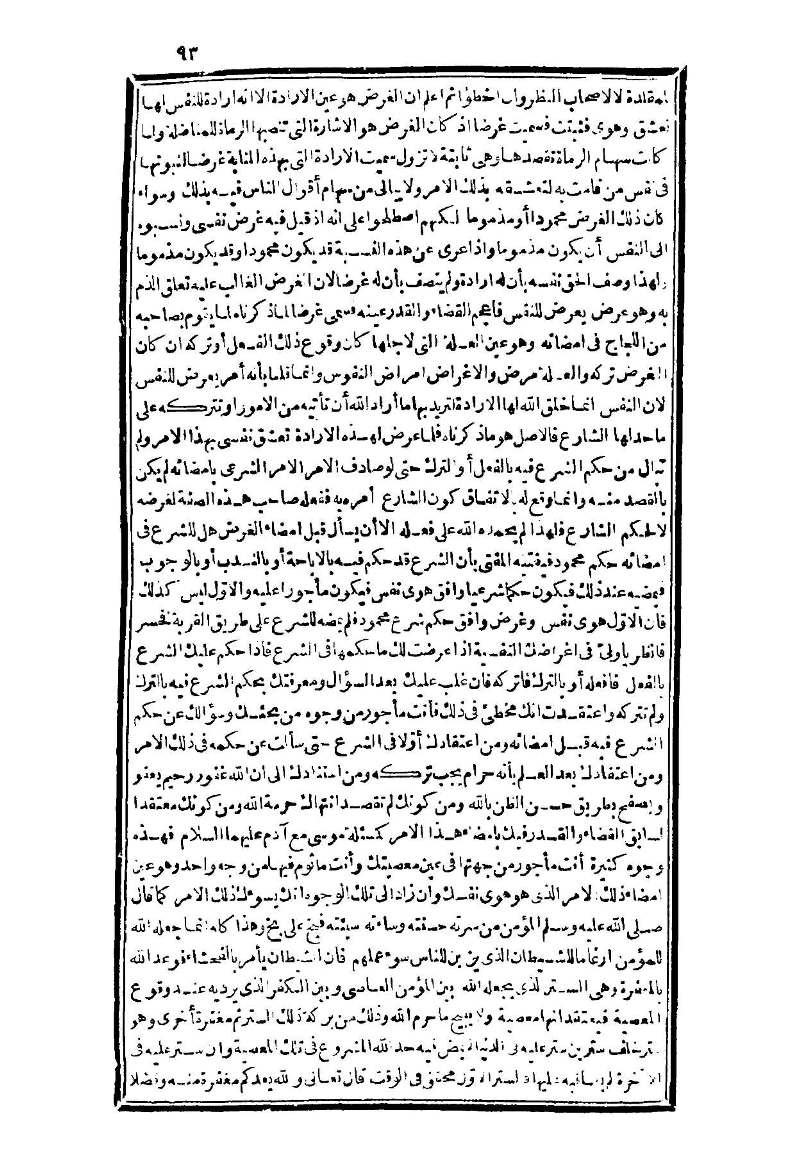 ٩٣
لمقلدة لا لاصحاب النظر وان اخطؤا ثم اعلم ان الغرض هو عين الارادة الا انه ارادة للنفس لها
تعشق وهوى فثبتت فسميت غرضا اذ كان الغرض هو الاشارة التي تنصبها الرماة للمناضلة ولما
كانت سهام الرماة تقصدها وهي ثابتة لا تزول سميت الارادة التي بهذه المثابة غرضا لثبوتها
في نفس من قامت به لتعشقه بذلك الامر ولا يبالي من سهام أقوال الناس فيه بذلك وسواء
كان ذلك الغرض محمودا أو مذموما لكنهم اصطلحوا على انه اذ قيل فيه غرض نفسي ونسبوه
الى النفس أن يكون مذموما واذا عرى عن هذه النسبة قد يكون محمودا وقد يكون مذموما
ولهذا وصف الحق نفسه بأن له ارادة ولم يتصف بأن له غرضا لان الغرض الغالب عليه تعلق الذم
به وهو عرض يعرض للنفس فاعجم القضاء والقدر عينه فسمى غرضا لما ذكرناه لما يقوم بصاحبه
من اللجاج في امضائه وهو عين العلة التي لاجلها كان وقوع ذلك الفعل أو تركه ان كان
الغرض تركه والعلة مرض والاغراض امراض النفوس وانما قلنا بأنه أمر يعرض للنفس
لان النفس انما خلق الله لها الارادة لتريد بها ما أراد الله أن تأتيه من الامور او تتركه على
ما حد لها الشارع فالاصل هو ما ذكرناه فلما عرض لهذه الارادة تعشق نفسي بهذا الامر ولم
تبال من حكم الشرع فيه بالفعل أو الترك حتى لو صادف الامر الامر الشرعي بامضائه لم يكن
بالقصد منه وانما وقع له بالاتفاق كون الشارع أمره به ففعله صاحب هذه الصفة لغرضه
لا لحكم الشارع فلهذا لم يحمده الله على فعله الا أن يسأل قبل امضاء الغرض هل للشرع في
امضائه حكم محمود فيفتيه المفتي بأن الشرع قد حكم فيه بالاباحة أو بالندب أو بالوجوب
فيمضيه عند ذلك فيكون حكما شرعيا وافق هوى نفس فيكون مأجورا عليه والاول ليس كذلك
فان الاول هوى نفس وغرض وافق حكم شرع محمود فلم يمضه للشرع على طريق القربة فخسر
فانظر يا ولي في اغراضك النفسية اذا عرضت لك ما حكمها في الشرع فاذا حكم عليك الشرع
بالفعل فافعله أو بالترك فاتركه فان غلب عليك بعد السؤال ومعرفتك بحكم الشرع فيه بالترك
ولم تتركه واعتقدت انك مخطئ في ذلك فأنت مأجور من وجوه من بحثك وسؤالك عن حكم
الشرع فيه قبل امضائه ومن اعتقادك أولا في الشرع حتى سألت عن حكمه في ذلك الامر
ومن اعتقادك بعد العلم بأنه حرام يجب تركه ومن استنادك الى ان الله غفور رحيم يعفو
ويصفح بطريق حسن الظن بالله ومن كونك لم تقصد انتهاك حرمة الله ومن كونك معتقدا
لسابق القضاء والقدر فيك بامضاء هذا الامر كمسئلة موسى مع آدم عليهما السلام فهذه
وجوه كثيرة أنت مأجور من جهتها في عين معصيتك وأنت مأثوم فيها من وجه واحد وهو عين
امضاء ذلك الامر الذي هو هوى نفسك وان زاد الى تلك الوجوه انك يسوءك ذلك الامر كما قال
صلى الله عليه وسلم المؤمن من سرته حسنته وساءته سيئته فبخ على بخ وهذا كله انما جعله الله
للمؤمن ارغاما للشيطان الذي زين للناس سوء عملهم فان الشيطان يأمر بالفحشاء فوعد الله
بالمغفرة وهي الستر الذي يجعله الله بين المؤمن العاصي وبين الكفر الذي يرديه عند وقوع
المعصية فيعتقد انها معصية ولا يبيح ما حرم الله وذلك من بركة ذلك الستر ثم مغفرة أخرى وهو
ستر خلف ستر ستر عليه في الدنيا لم يمض فيه حد الله المشروع في تلك المعصية وان ستر عليه في
الآخرة لم يعاقبه عليها محقق في الوقت قال تعالى والله يعدكم مغفرة منه وفضلا